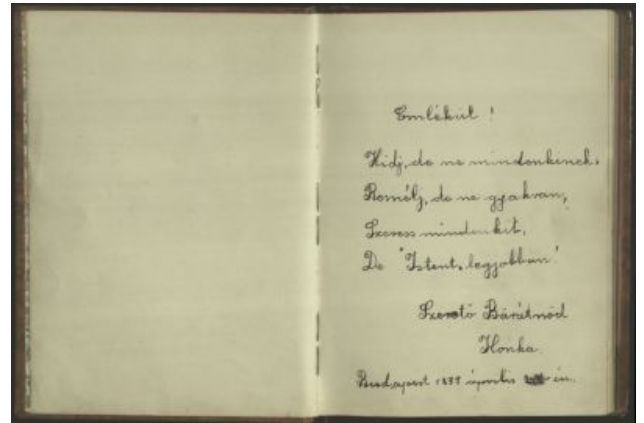 Emlékül !
Hidj, de ne mindenkinek.
Remélj, de ne gyakran,
Szeress mindenkit,
De "Istent" legjobban!
Szerető Bárátnőd
Ilonka.
Budapest április én.